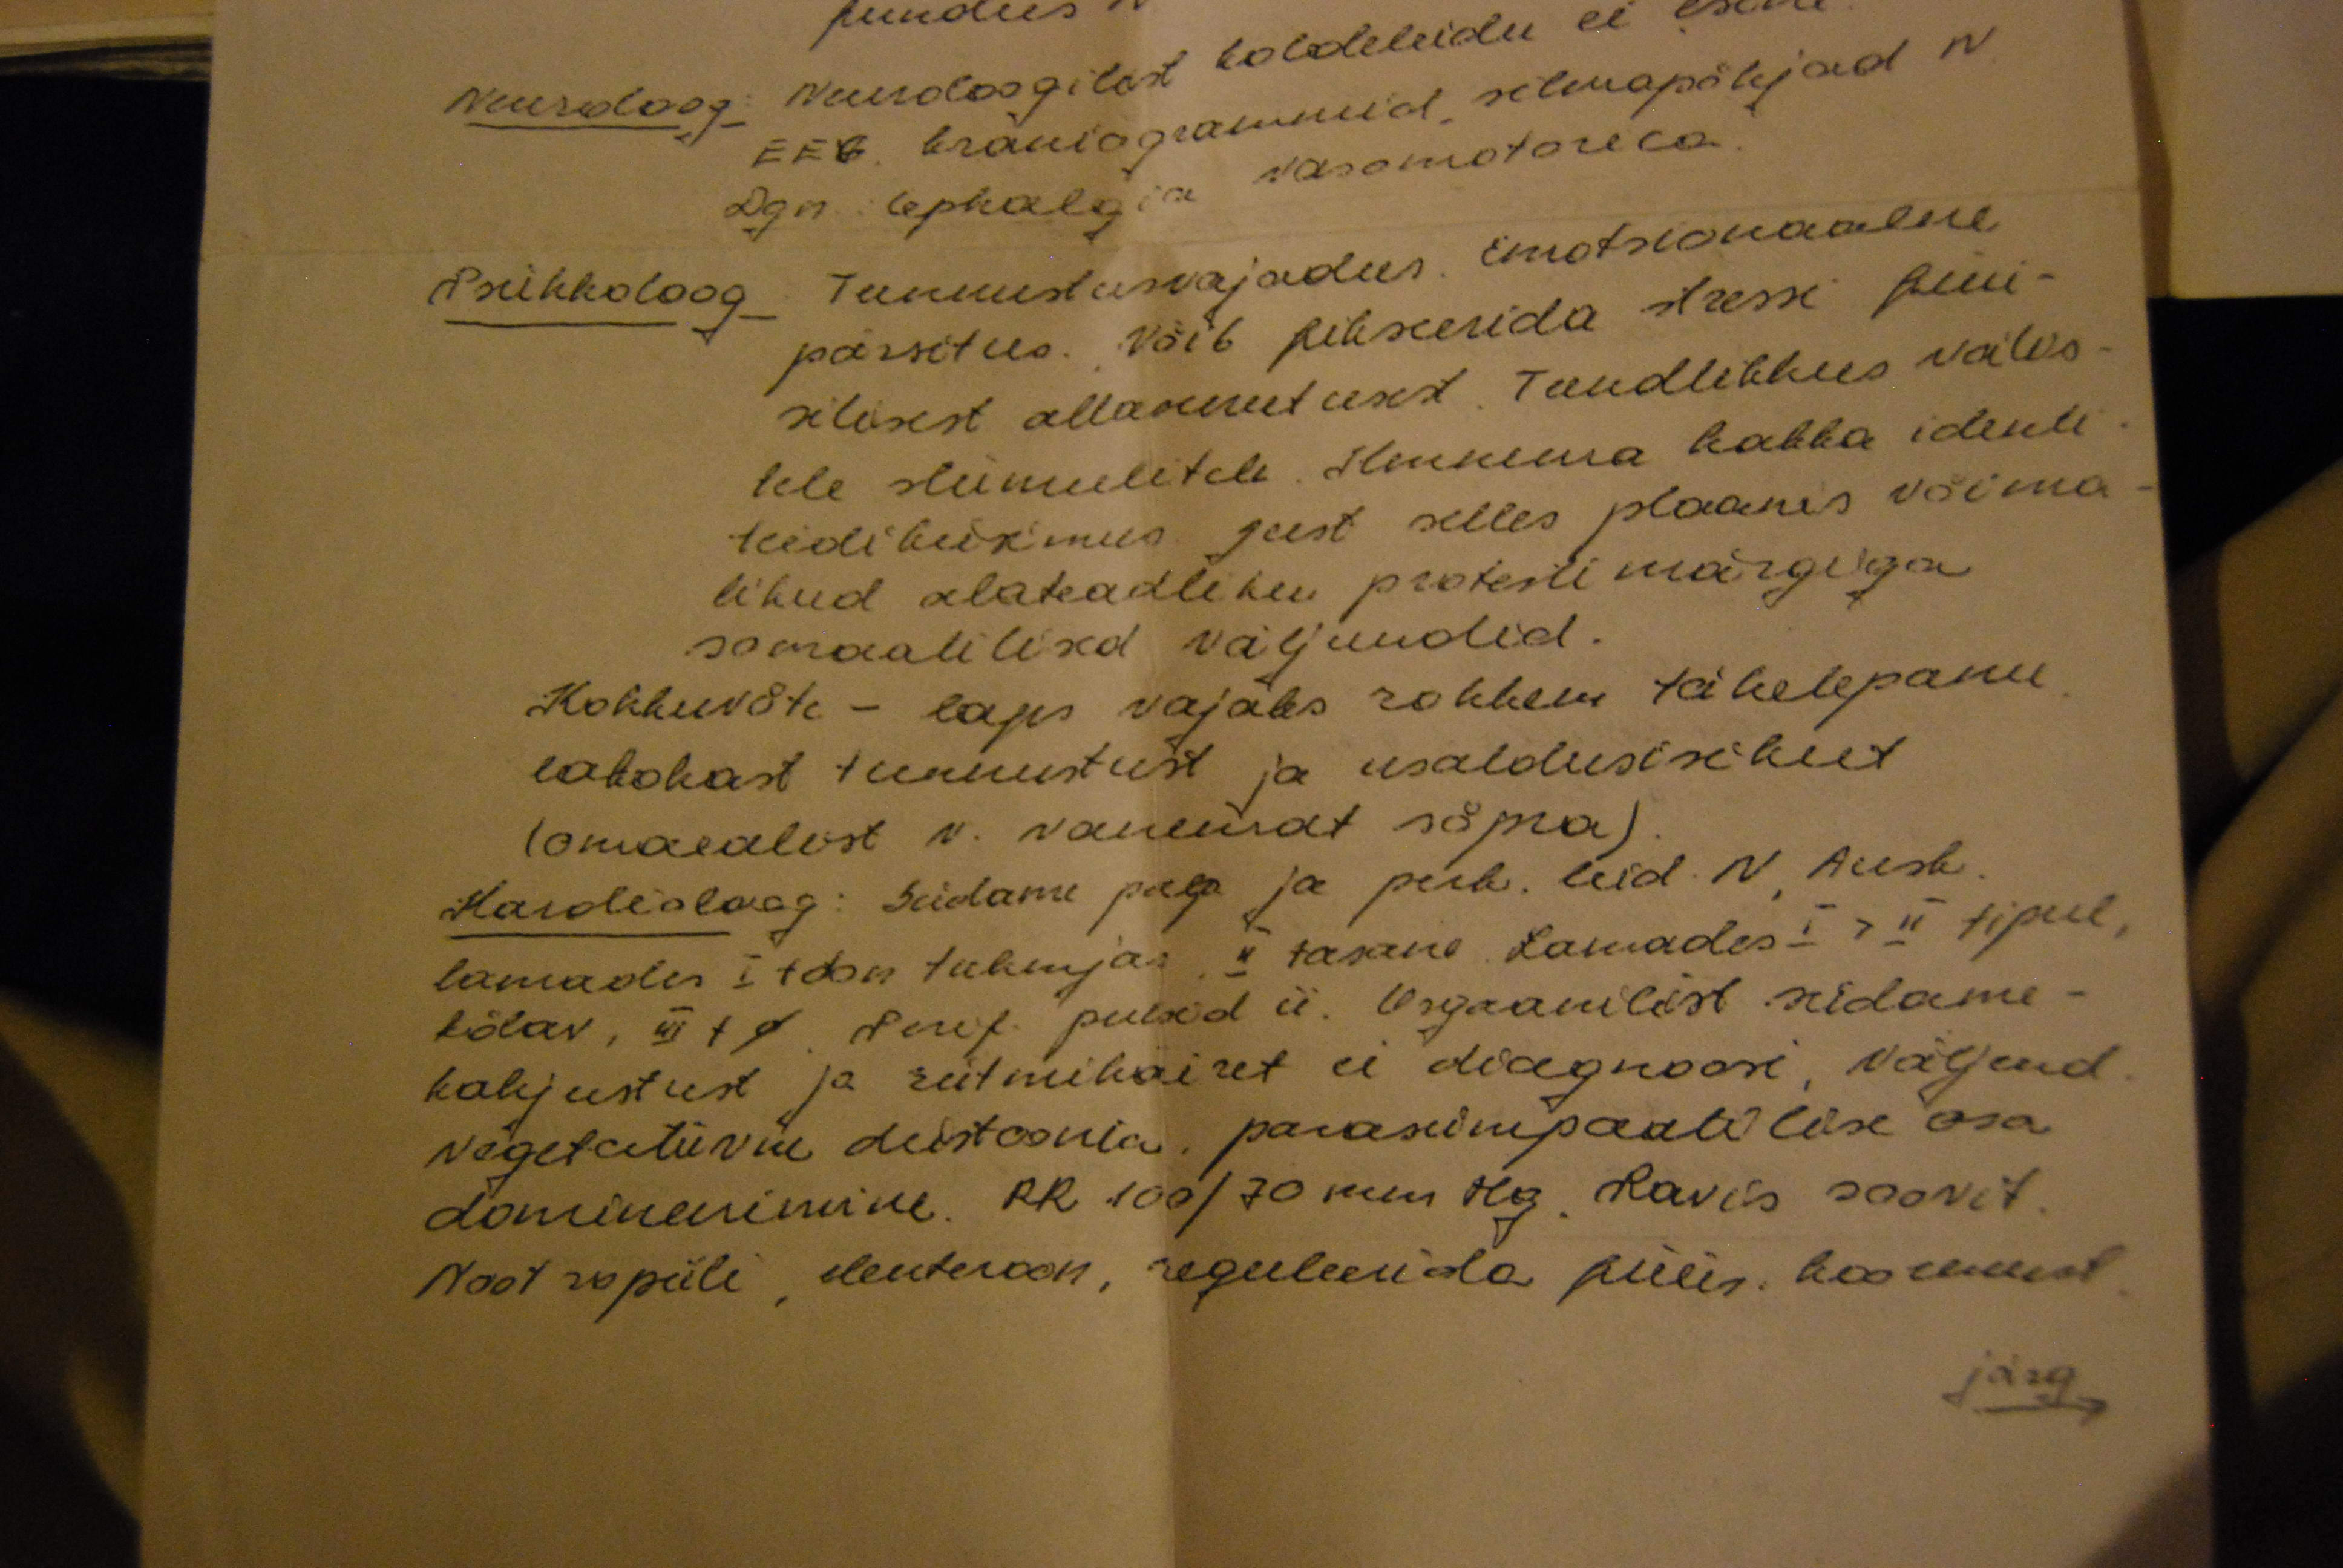 fundus N
Neuroloog: Neuroloogilist koldeleidu ei esine.
EEG, kraniogrammid, silmapõhjad N.
Dgn: Cephalgia vasomotorica.
Psühholoog: Tunnustusvajadus. Emotsionaalne
pärsitus. Võib fikseerida stressi füüsi-
silisest allasurutusest. Tundlikkus välis-
tele stiimulitele. Ilmnema hakka identi-
teidiküsimus. Just selles plaanis võima-
likud alateadliku protesti märgiga
somaatilised väljundid.
Kokkuvõte - laps vajaks rohkem tähelepanu,
rahokast tunnustust ja usaldusisikut
(omaealist v. vanemat sõpra).
Kardioloog: Südame palp ja perk. leid N, Ausk.
lamades I toon tuhmjas, II tasane. Lamades I > II tipul,
kõlav, III t ø. Perif. pulsid ü. Orgaanilist südame-
kahjustust ja rütmihäiret ei diagnoosi, väljend.
vegetatiivne düstoonia, parasümpaatilise osa
domineerimine. RR 100/70 mm Hg. Raviks soovit.
Nootropiili, eleuterokokk, reguleerida füüs. koormust.
järg